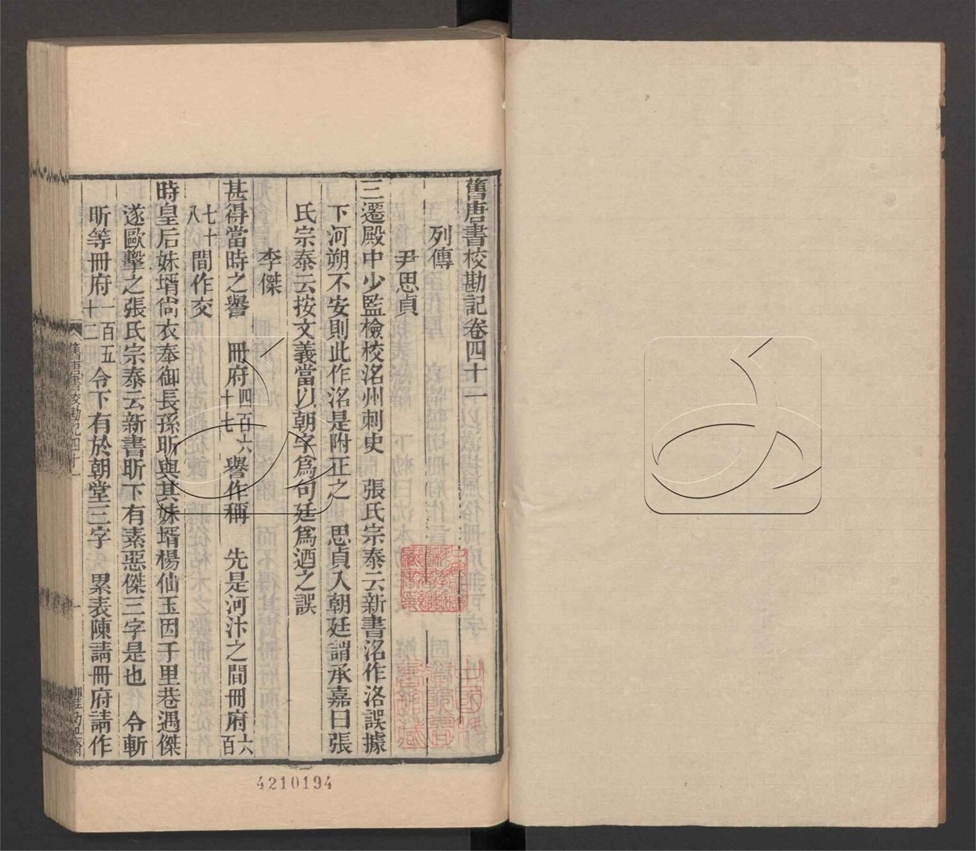 舊唐書校勘記卷四十一
列傳
尹思貞
三遷殿中少監檢校洺州刺史　張氏宗泰云新書洺作洛誤據
下河朔不安則此作洺是附正之　思貞入朝廷謂承嘉曰張
氏宗泰云按文義當以朝字爲句廷爲迺之誤
李傑
甚得當時之譽　冊府四百六十七譽作稱　先是河汴之間冊府六百
七十八間作交
時皇后妹壻尙衣奉御長孫昕與其妹壻楊仙玉因于里巷遇傑
遂歐擊之張氏宗泰云新書昕下有素惡傑三字是也　令斬
昕等冊府一百五十二令下有於朝堂三字　累表陳請冊府請作
舊唐書校勘記四十一
一
4210194